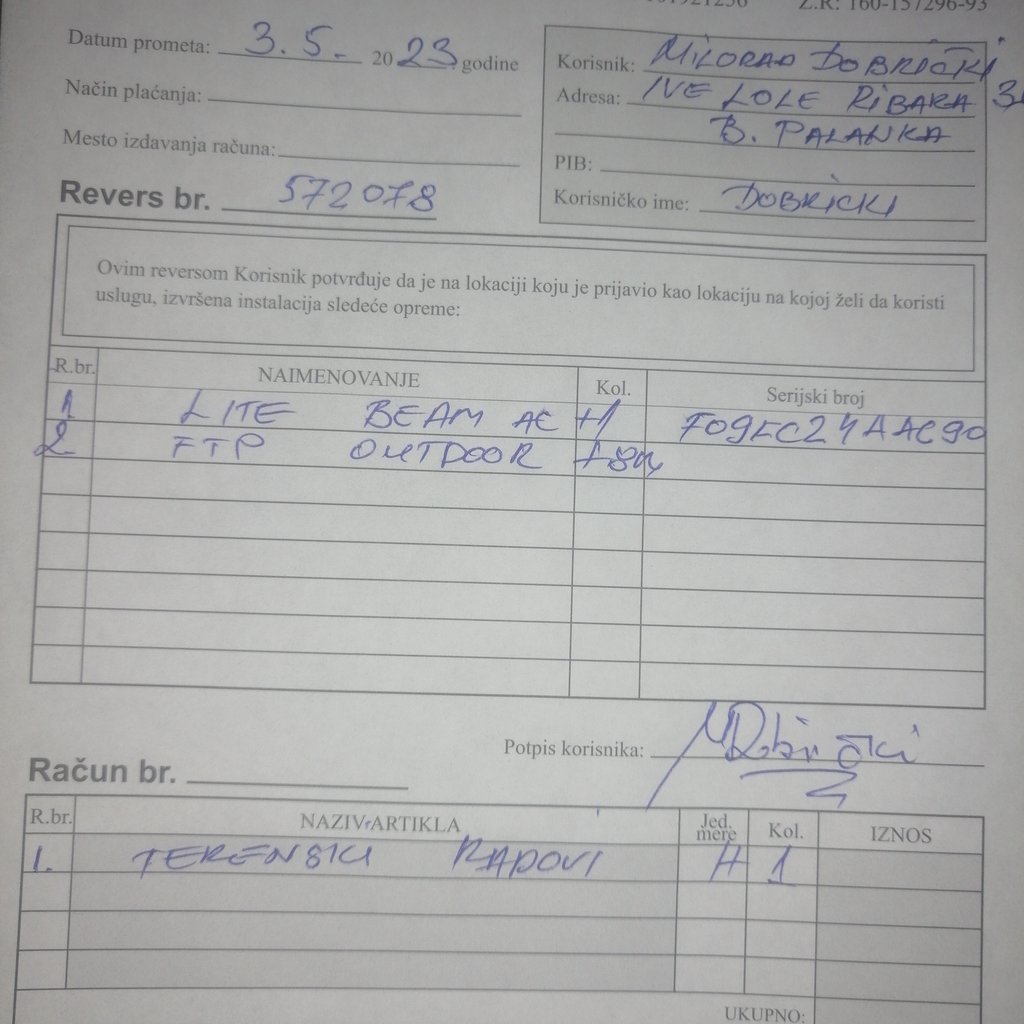 Z.R: 160-157296-93
Datum prometa: 3. 5. 2023 godine
Način plaćanja:
Mesto izdavanja računa:
Korisnik: MILORAD DOBRIČKI
Adresa: IVE LOLE RIBARA
B. PALANKA
PIB:
Korisničko ime: DOBRICKI
Revers br. 572078
Ovim reversom Korisnik potvrđuje da je na lokaciji koju je prijavio kao lokaciju na kojoj želi da koristi
uslugu, izvršena instalacija sledeće opreme:
R.br. NAIMENOVANJE Kol. Serijski broj
1 LITE BEAM AC +1 F09FC24AAC90
2 FTP OUTDOOR
Potpis korisnika:
Račun br.
R.br. NAZIV ARTIKLA Jed. mere Kol. IZNOS
1. TERENSKI RADOVI H 1
UKUPNO: